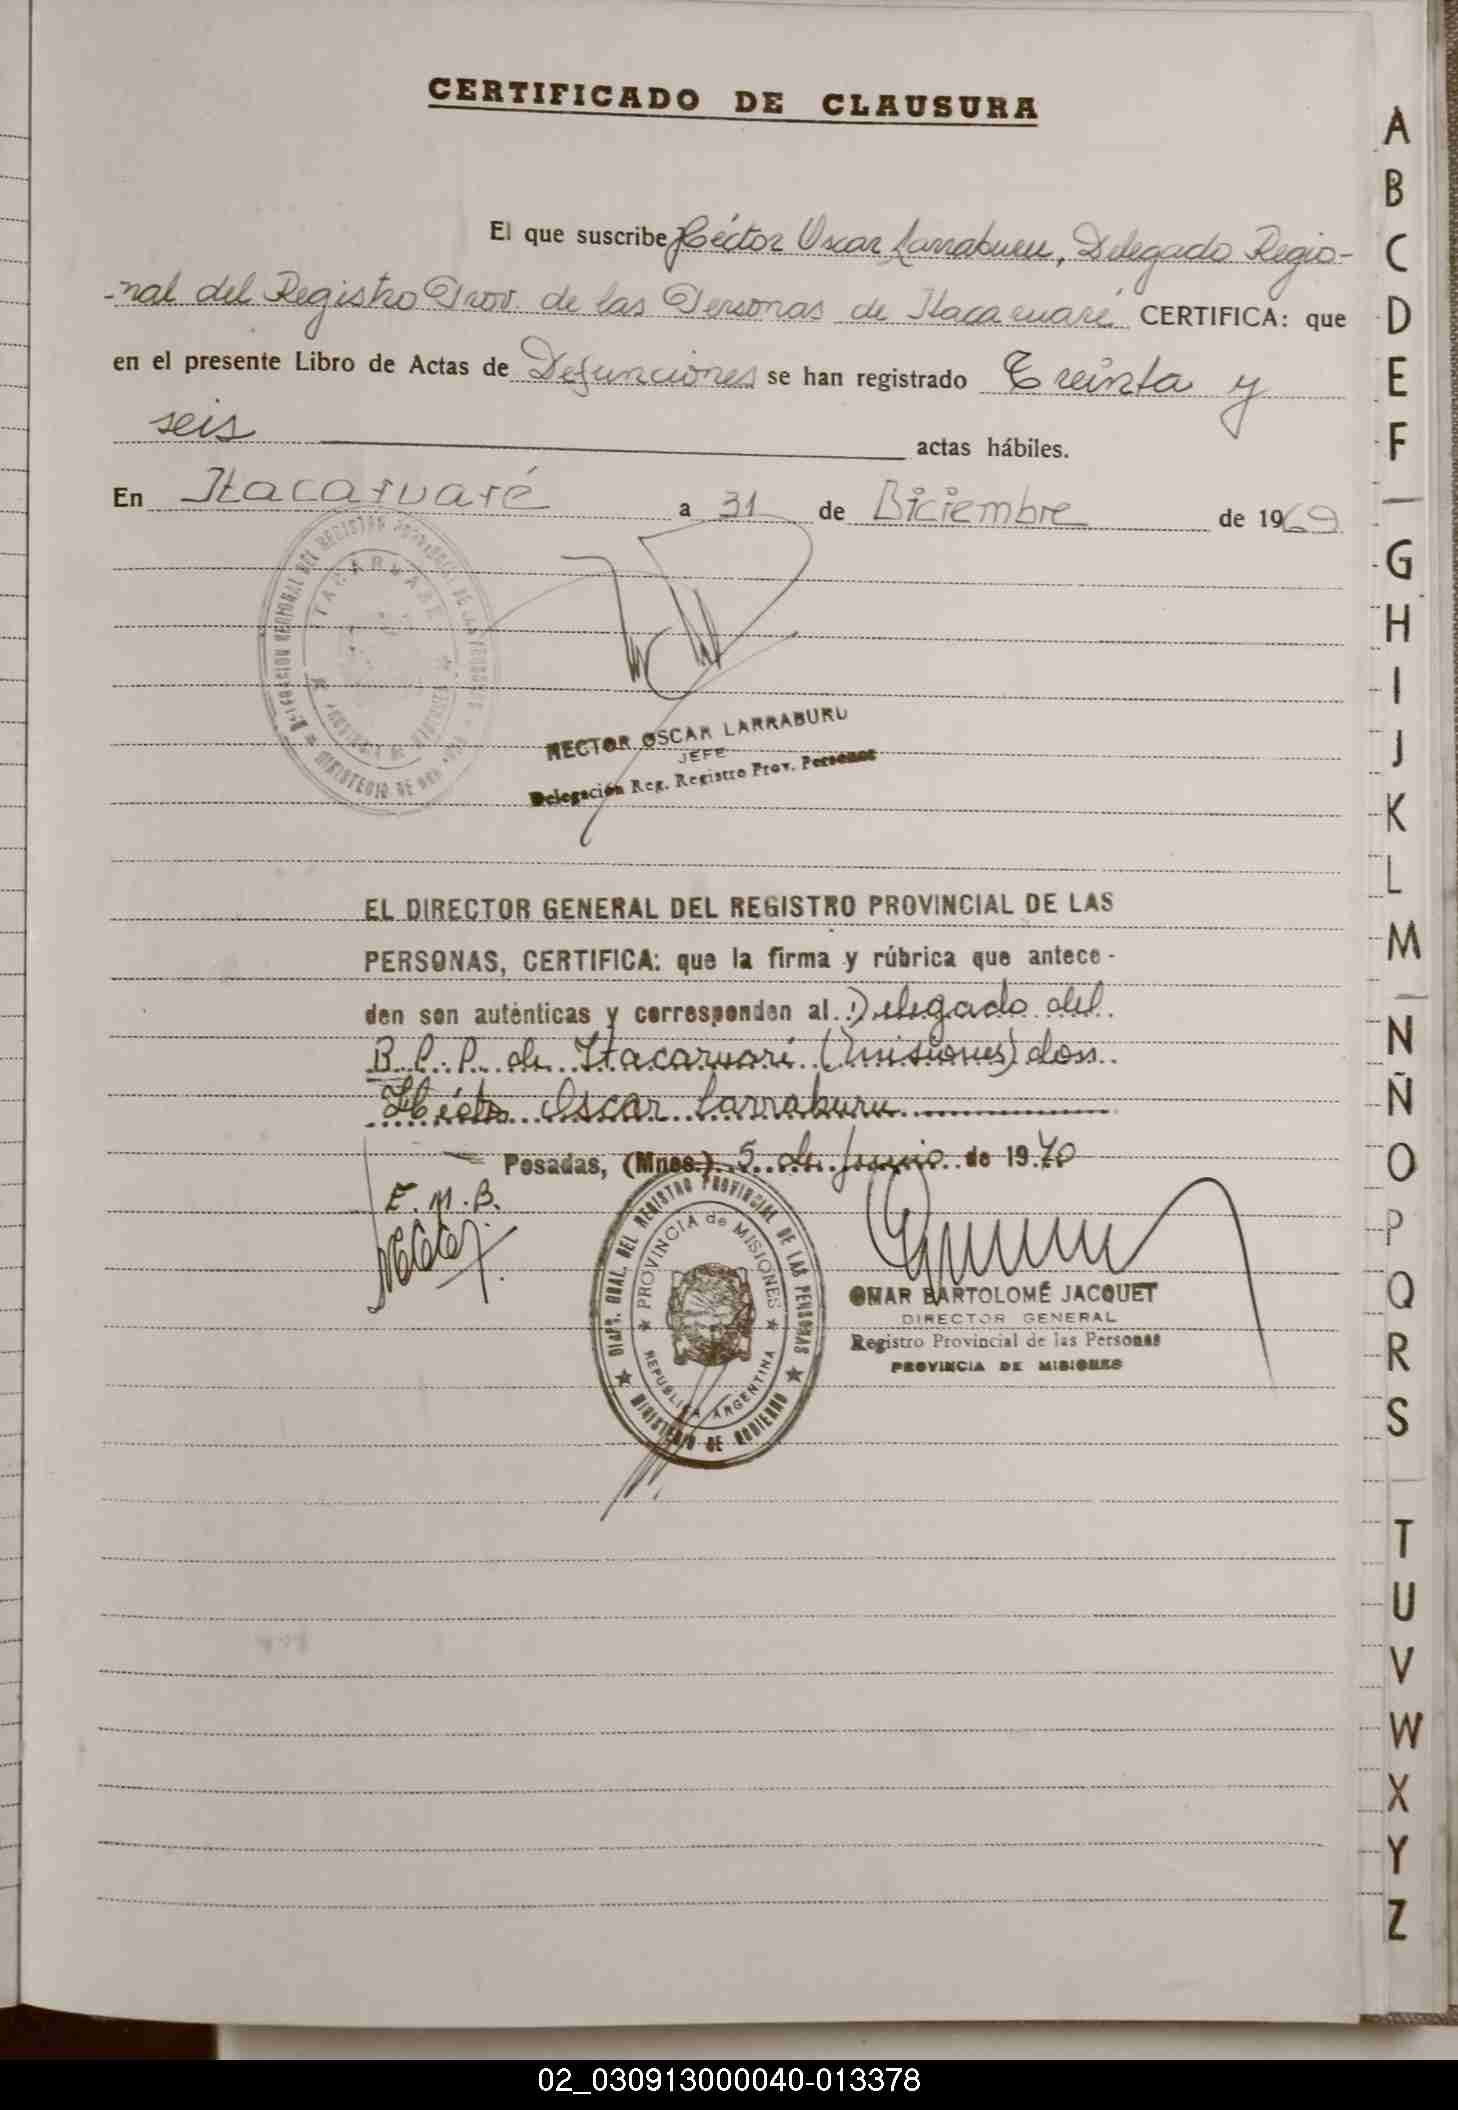 CERTIFICADO DE CLAUSURA
El que suscribe Héctor Oscar Larraburu, Delegado Regio-
-nal del Registro Prov. de las Personas de Itacaruaré CERTIFICA: que
en el presente Libro de Actas de Defunciones se han registrado Treinta y
seis actas hábiles.
En Itacaruaré a 31 de Diciembre de 1969
ITACARUARE
HECTOR OSCAR LARRABURU
JEFE
Delegación Reg. Registro Prov. Personas
EL DIRECTOR GENERAL DEL REGISTRO PROVINCIAL DE LAS
PERSONAS, CERTIFICA: que la firma y rúbrica que antece-
den son auténticas y corresponden al Delegado del
de Itacaruaré (Misiones) don
Héctor Oscar Larraburu
Posadas, (Mnes.) 5 de Junio de 1970
E. M. B.
DIREC. GRAL. DEL REGISTRO PROVINCIAL DE LAS PERSONAS
PROVINCIA de MISIONES
REPUBLICA ARGENTINA
MINISTERIO DE GOBIERNO
OMAR BARTOLOMÉ JACQUET
DIRECTOR GENERAL
Registro Provincial de las Personas
PROVINCIA DE MISIONES
A
B
C
D
E
F
G
H
I
J
K
L
M
N
Ñ
O
P
Q
R
S
T
U
V
W
X
Y
Z
02_030913000040-013378